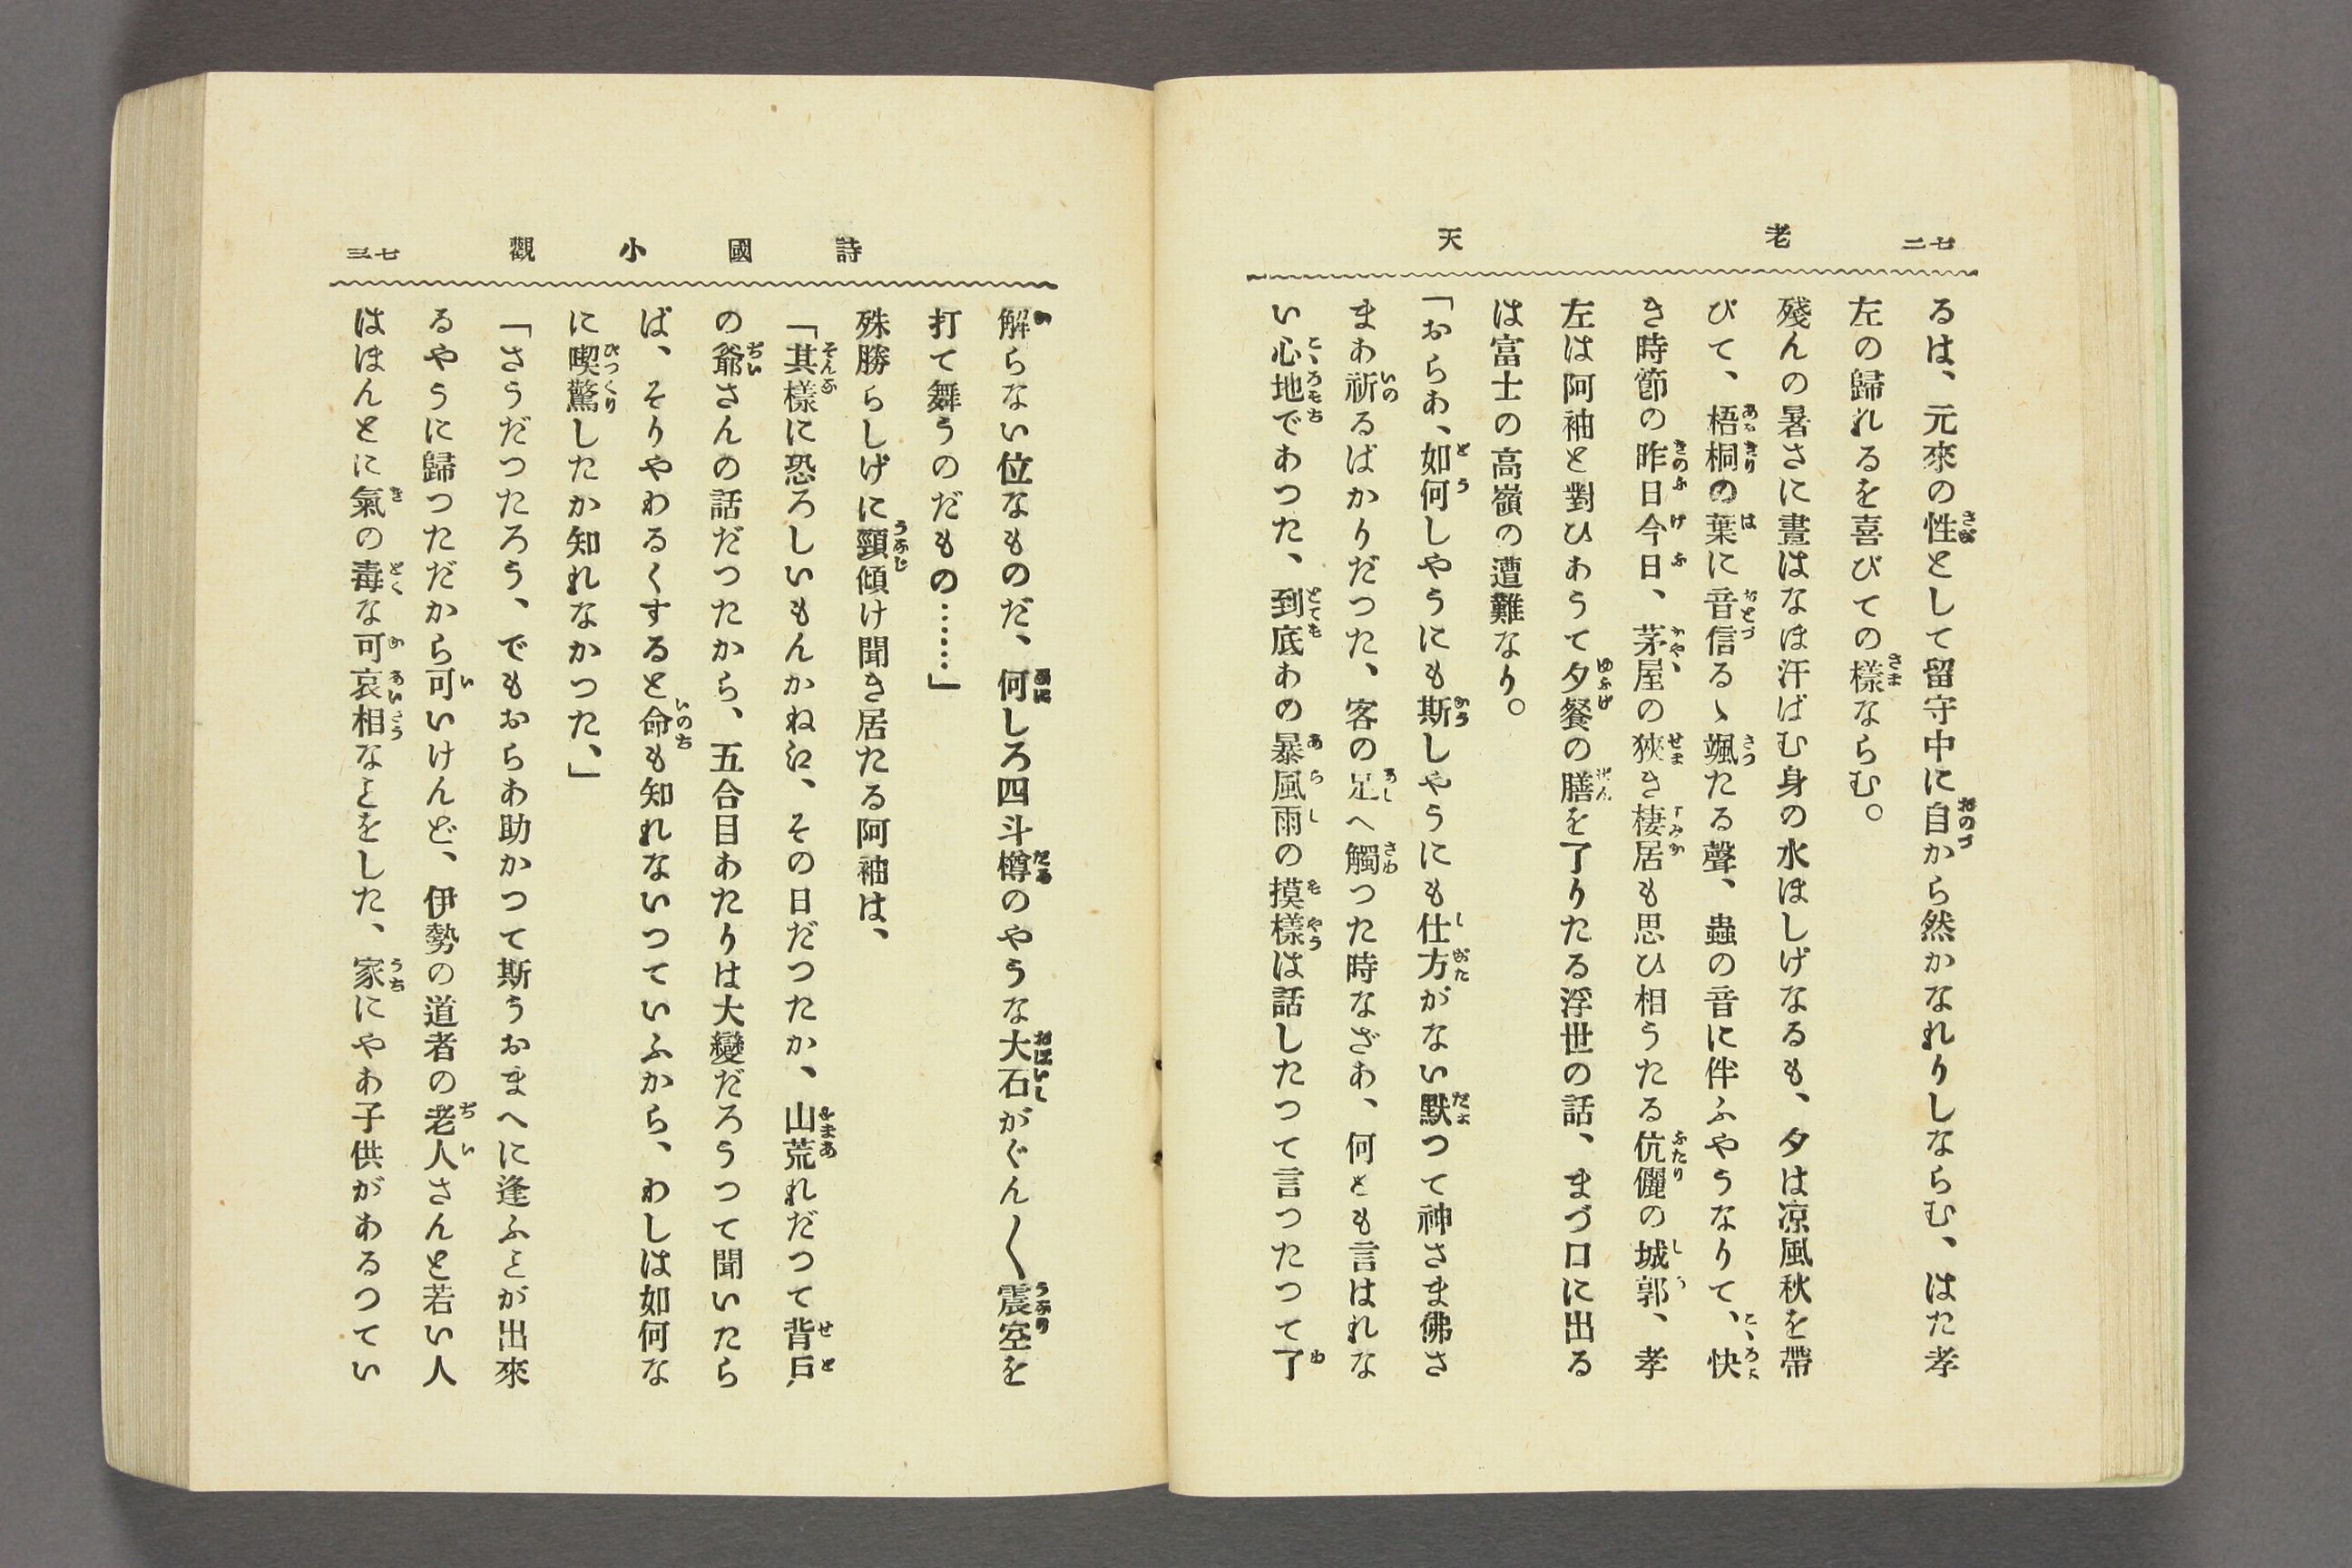 七二
老天
るは、元來の性として留守中に自から然かなれりしならむ、はた孝
左の歸れるを喜びての樣ならむ。
殘んの暑さに晝はなほ汗ばむ身の水ほしげなるも、夕は凉風秋を帶
びて、梧桐の葉に音信るゝ颯たる聲、蟲の音に伴ふやうなりて、快
き時節の昨日今日、茅屋の狹き棲居も思ひ相うたる伉儷の城郭、孝
左は阿袖と對ひわうて夕餐の膳を了りたる浮世の話、まづ口に出る
は富士の高嶺の遭難なり。
「おらわ、如何しやうにも斯しやうにも仕方がない默つて神さま佛さ
まわ祈るばかりだつた、客の足へ觸つた時なざわ、何とも言はれな
い心地であつた、到底あの暴風雨の摸樣は話したつて言つたつて了
詩國小觀
七三
解らない位なものだ、何しろ四斗樽のやうな大石がぐん〱震空を
打て舞うのだもの……」
殊勝らしげに頸傾け聞き居たる阿袖は、
「其樣に恐ろしいもんかね江、その日だつたか、山荒れだつて背戸
の爺さんの話だつたから、五合目わたりは大變だろうつて聞いたら
ば、そりやわるくすると命も知れないつていふから、わしは如何な
に喫驚したか知れなかつた、」
「さうだつたろう、でもおらわ助かつて斯うおまへに逢ふとが出來
るやうに歸つただから可いけんど、伊勢の道者の老人さんと若い人
はほんとに氣の毒な可哀相なとをした、家にやわ子供があるつてい